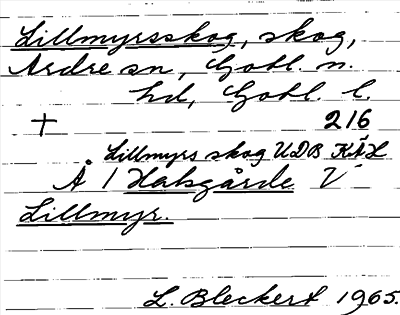 Lillmyrsskog, skog,
Ardre sn, Gotl. n.
hd, Gotl. l.
+ 216
Lillmyrs skog UDB KÄX
Å 1 Halsgårde V
Lillmyr.
L. Bleckert 1965.